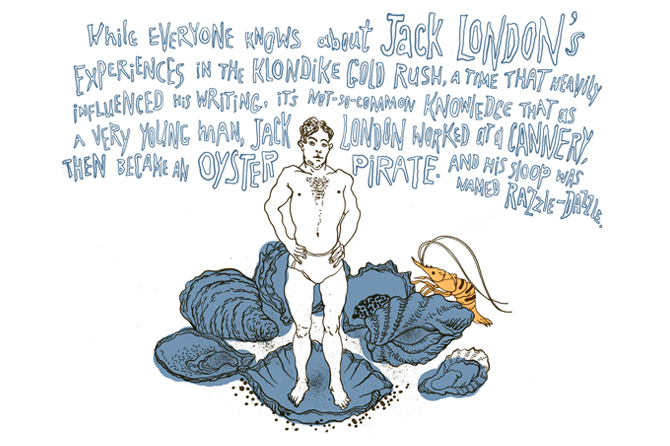 While EVERYONE KNOWS about JACK LONDON'S
EXPERIENCES IN THE KLONDIKE GOLD RUSH, A TIME THAT HEAVILY
INFLUENCED HIS WRITING, IT'S NOT-SO-COMMON KNOWLEDGE THAT as
A VERY YOUNG MAN, JACK LONDON WORKED at a CANNERY,
THEN BECAME AN OYSTER PIRATE. AND HIS SLOOP WAS
NAMED RAZZLE-DAZZLE.